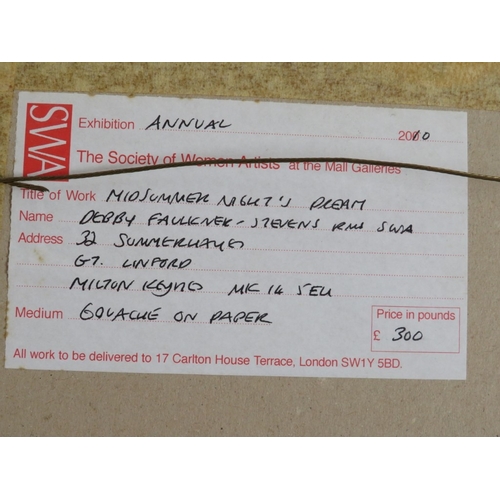 SWA
Exhibition ANNUAL 2010
The Society of Women Artists at the Mall Galleries
Title of Work MIDSUMMER NIGHT'S DREAM
Name DEBBY FAULKNER-STEVENS RMS SWA
Address 32 SUMMERHAYES
GT. LINFORD
MILTON KEYNES MK14 5EU
Medium GOUACHE ON PAPER
Price in pounds
£ 300
All work to be delivered to 17 Carlton House Terrace, London SW1Y 5BD.